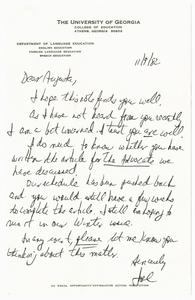 THE UNIVERSITY OF GEORGIA
COLLEGE OF EDUCATION
ATHENS, GEORGIA 30602
DEPARTMENT OF LANGUAGE EDUCATION
ENGLISH EDUCATION
FOREIGN LANGUAGE EDUCATION
SPEECH EDUCATION
11/9/82
Dear
I hope this note finds you well,
as I have not heard from you recently
I am a bit concerned. I trust you are well.
I do need to know whether you have
written the article for the Advocate we
have discussed.
Our schedule has been pushed back
and you would still have a few weeks
to complete the article. I still am hoping to
run it in our Winter issue.
In any event, please let me know your
thinking about this matter.
Sincerely
Joel
AN EQUAL OPPORTUNITY/AFFIRMATIVE ACTION INSTITUTION